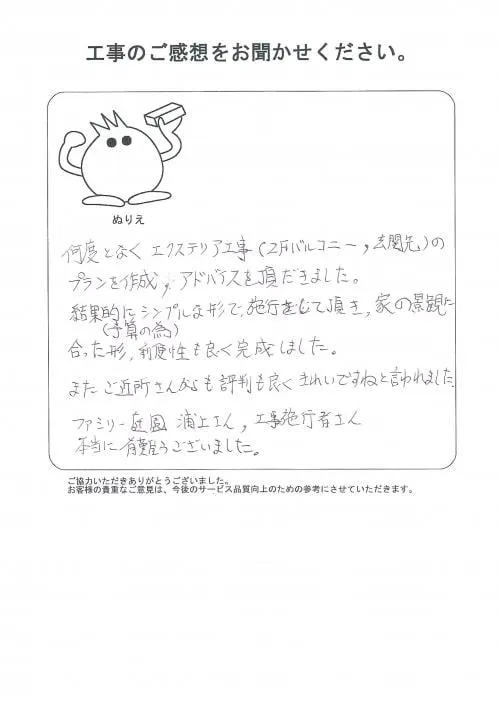 工事のご感想をお聞かせください。
ぬりえ
何度となく エクステリア工事(2Fバルコニー,玄関先)の
プランを作成, アドバイスを頂だきました。
結果的にシンプルな形で,施行をして頂き, 家の景観に
(予算の為)
合った形, 利便性も良く完成しました。
またご近所さんからも評判も良くきれいですねと言われました。
ファミリー庭園 浦上さん, 工事施行者さん
本当に有難うございました。
ご協力いただきありがとうございました。
お客様の貴重なご意見は、今後のサービス品質向上のための参考にさせていただきます。